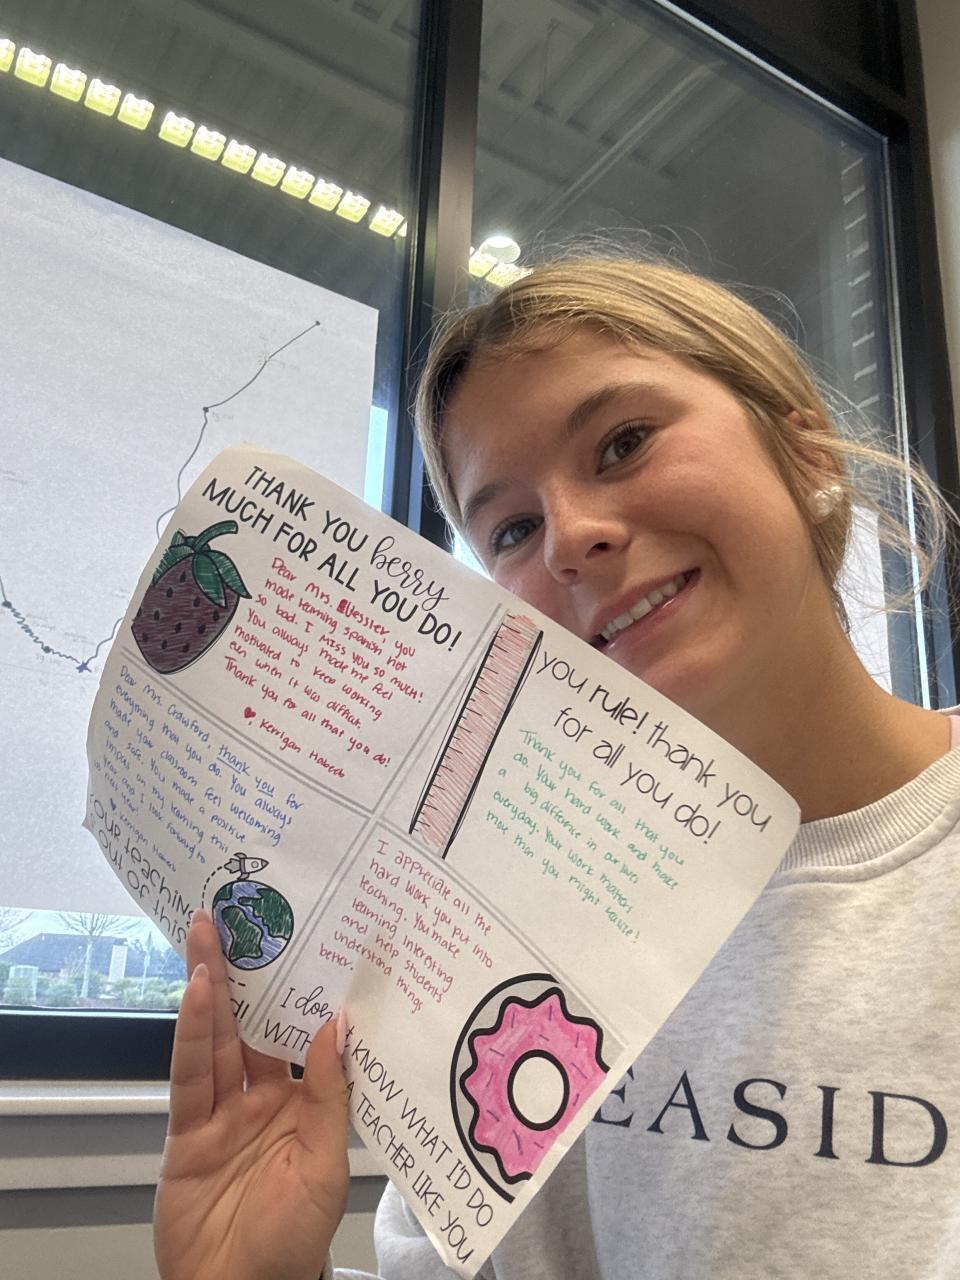 THANK YOU berry
MUCH FOR ALL YOU DO!
Dear Mrs. Liessler, you
made learning spanish not
so bad. I miss you so much!
You always made me feel
motivated to keep working
even when it was difficult.
Thank you for all that you do!
♥ Kerrigan Habeeb
you rule! thank you
for all you do!
Thank you for all that you
do. Your hard work and make
a big difference in our lives
everyday. Your work matters
more than you might realize!
Dear Mrs. Crawford, thank you for
everything that you do. You always
made your classroom feel welcoming
and safe. You made a positive
impact on my learning this
year and I look forward to
next year!
♥ Kerrigan
Your teaching
out of this
I appreciate all the
hard work you put into
teaching. You make
learning interesting
and help students
understand things
better.
I don't KNOW WHAT I'D DO
WITH A TEACHER LIKE YOU
EASID